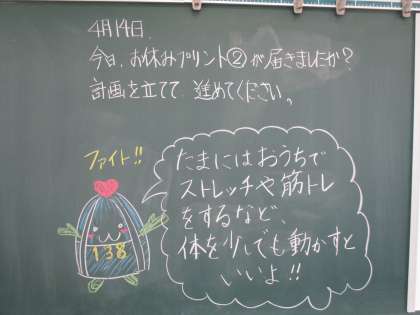 4月14日.
今日、お休みプリント②が届きましたか?
計画を立てて、進めてください。
ファイト!!
たまにはおうちで
ストレッチや筋トレ
をするなど、
体を少しでも動かすと
いいよ!!
138